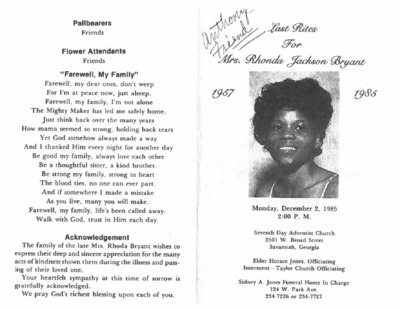 Pallbearers
Friends
Flower Attendants
Friends
"Farewell, My Family"
Farewell, my dear ones, don't weep
For I'm at peace now, just alseep.
Farewell, my family, I'm not alone
The Mighty Maker has led me safe home.
Just think back over the many years
How mama seemed so strong, holding back tears
Yet God somehow always made a way
And I thanked Him every night for another day
Be good my family, always love each other
Be a thoughtful sister, a kind brother.
Be strong my family, strong in heart
The blood ties, no one can ever part.
And if somewhere I made a mistake
As you live, many you will make.
Farewell, my family, life's been called away.
Walk with God, trust in Him each day.
Acknowledgement
The family of the late Mrs. Rhoda Bryant wishes to
express their deep and sincere appreciation for the many
acts of kindness shown them during the illness and pass-
ing of their loved one.
Your heartfelt sympathy at this time of sorrow is
gratefully acknowledged.
We pray God's richest blessing upon each of you.
Anthony
Friend
Last Rites
For
Mrs. Rhonda Jackson Bryant
1957 1985
Monday, December 2, 1985
2:00 P. M.
Seventh Day Adventist Church
2501 W. Broad Street
Savannah, Georgia
Elder Horace Jones, Officiating
Interment—Taylor Church Officiating
Sidney A. Jones Funeral Home In Charge
124 W. Park Ave.
234-7226 or 234-7727